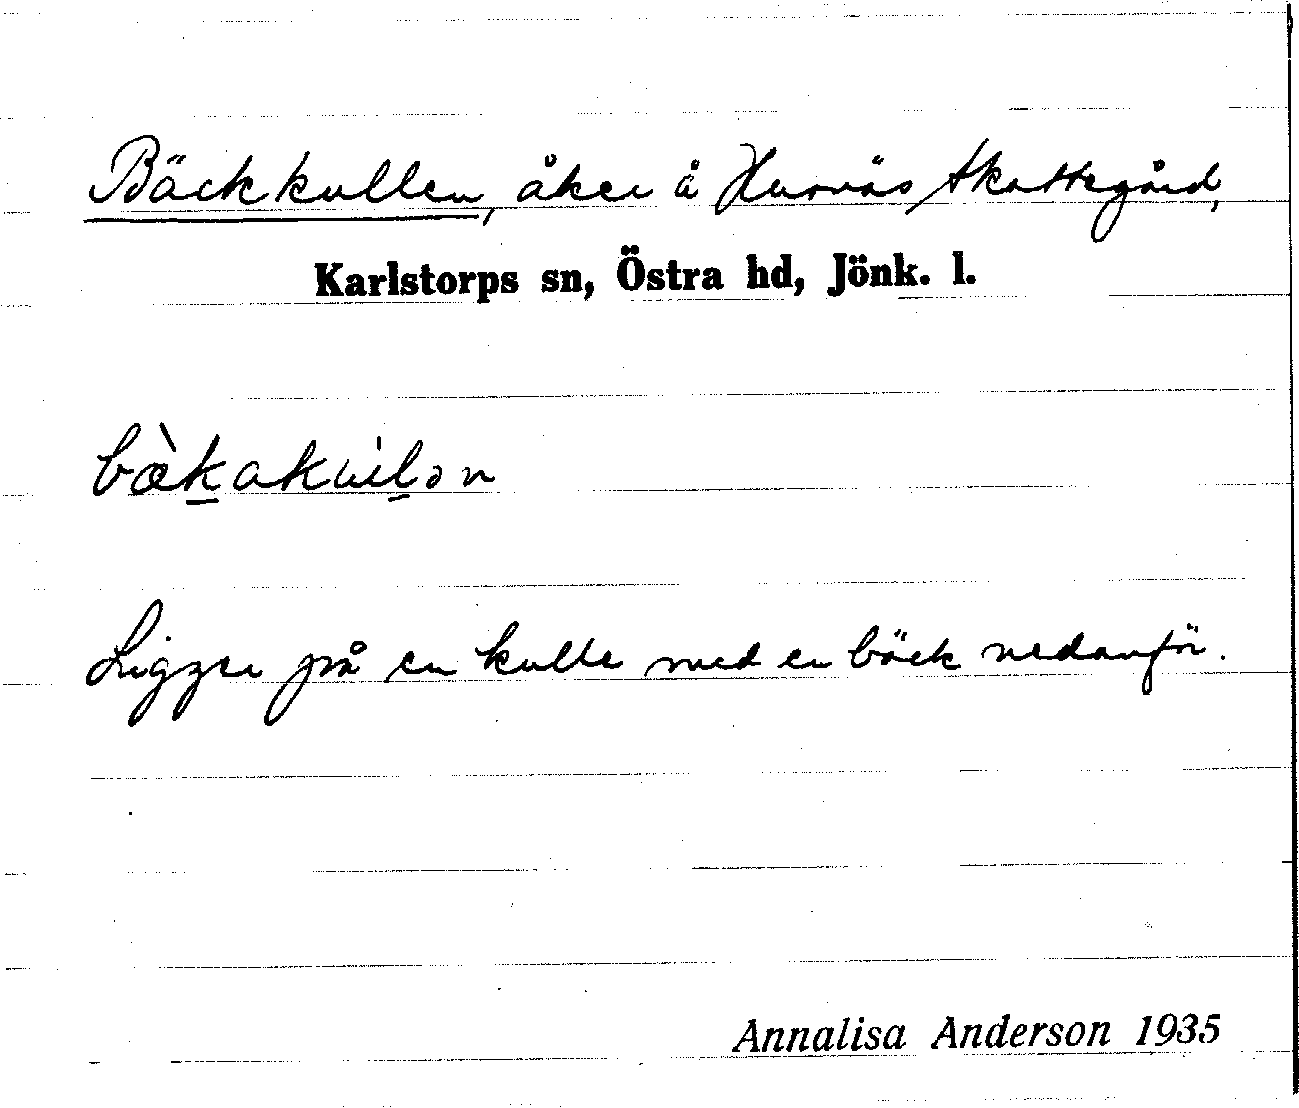 Bäckkullen, åker å Hurvås Skattegård,
Karlstorps sn, Östra hd, Jönk. l.
Ligger på en kulle med en bäck nedanför.
Annalisa Anderson 1935